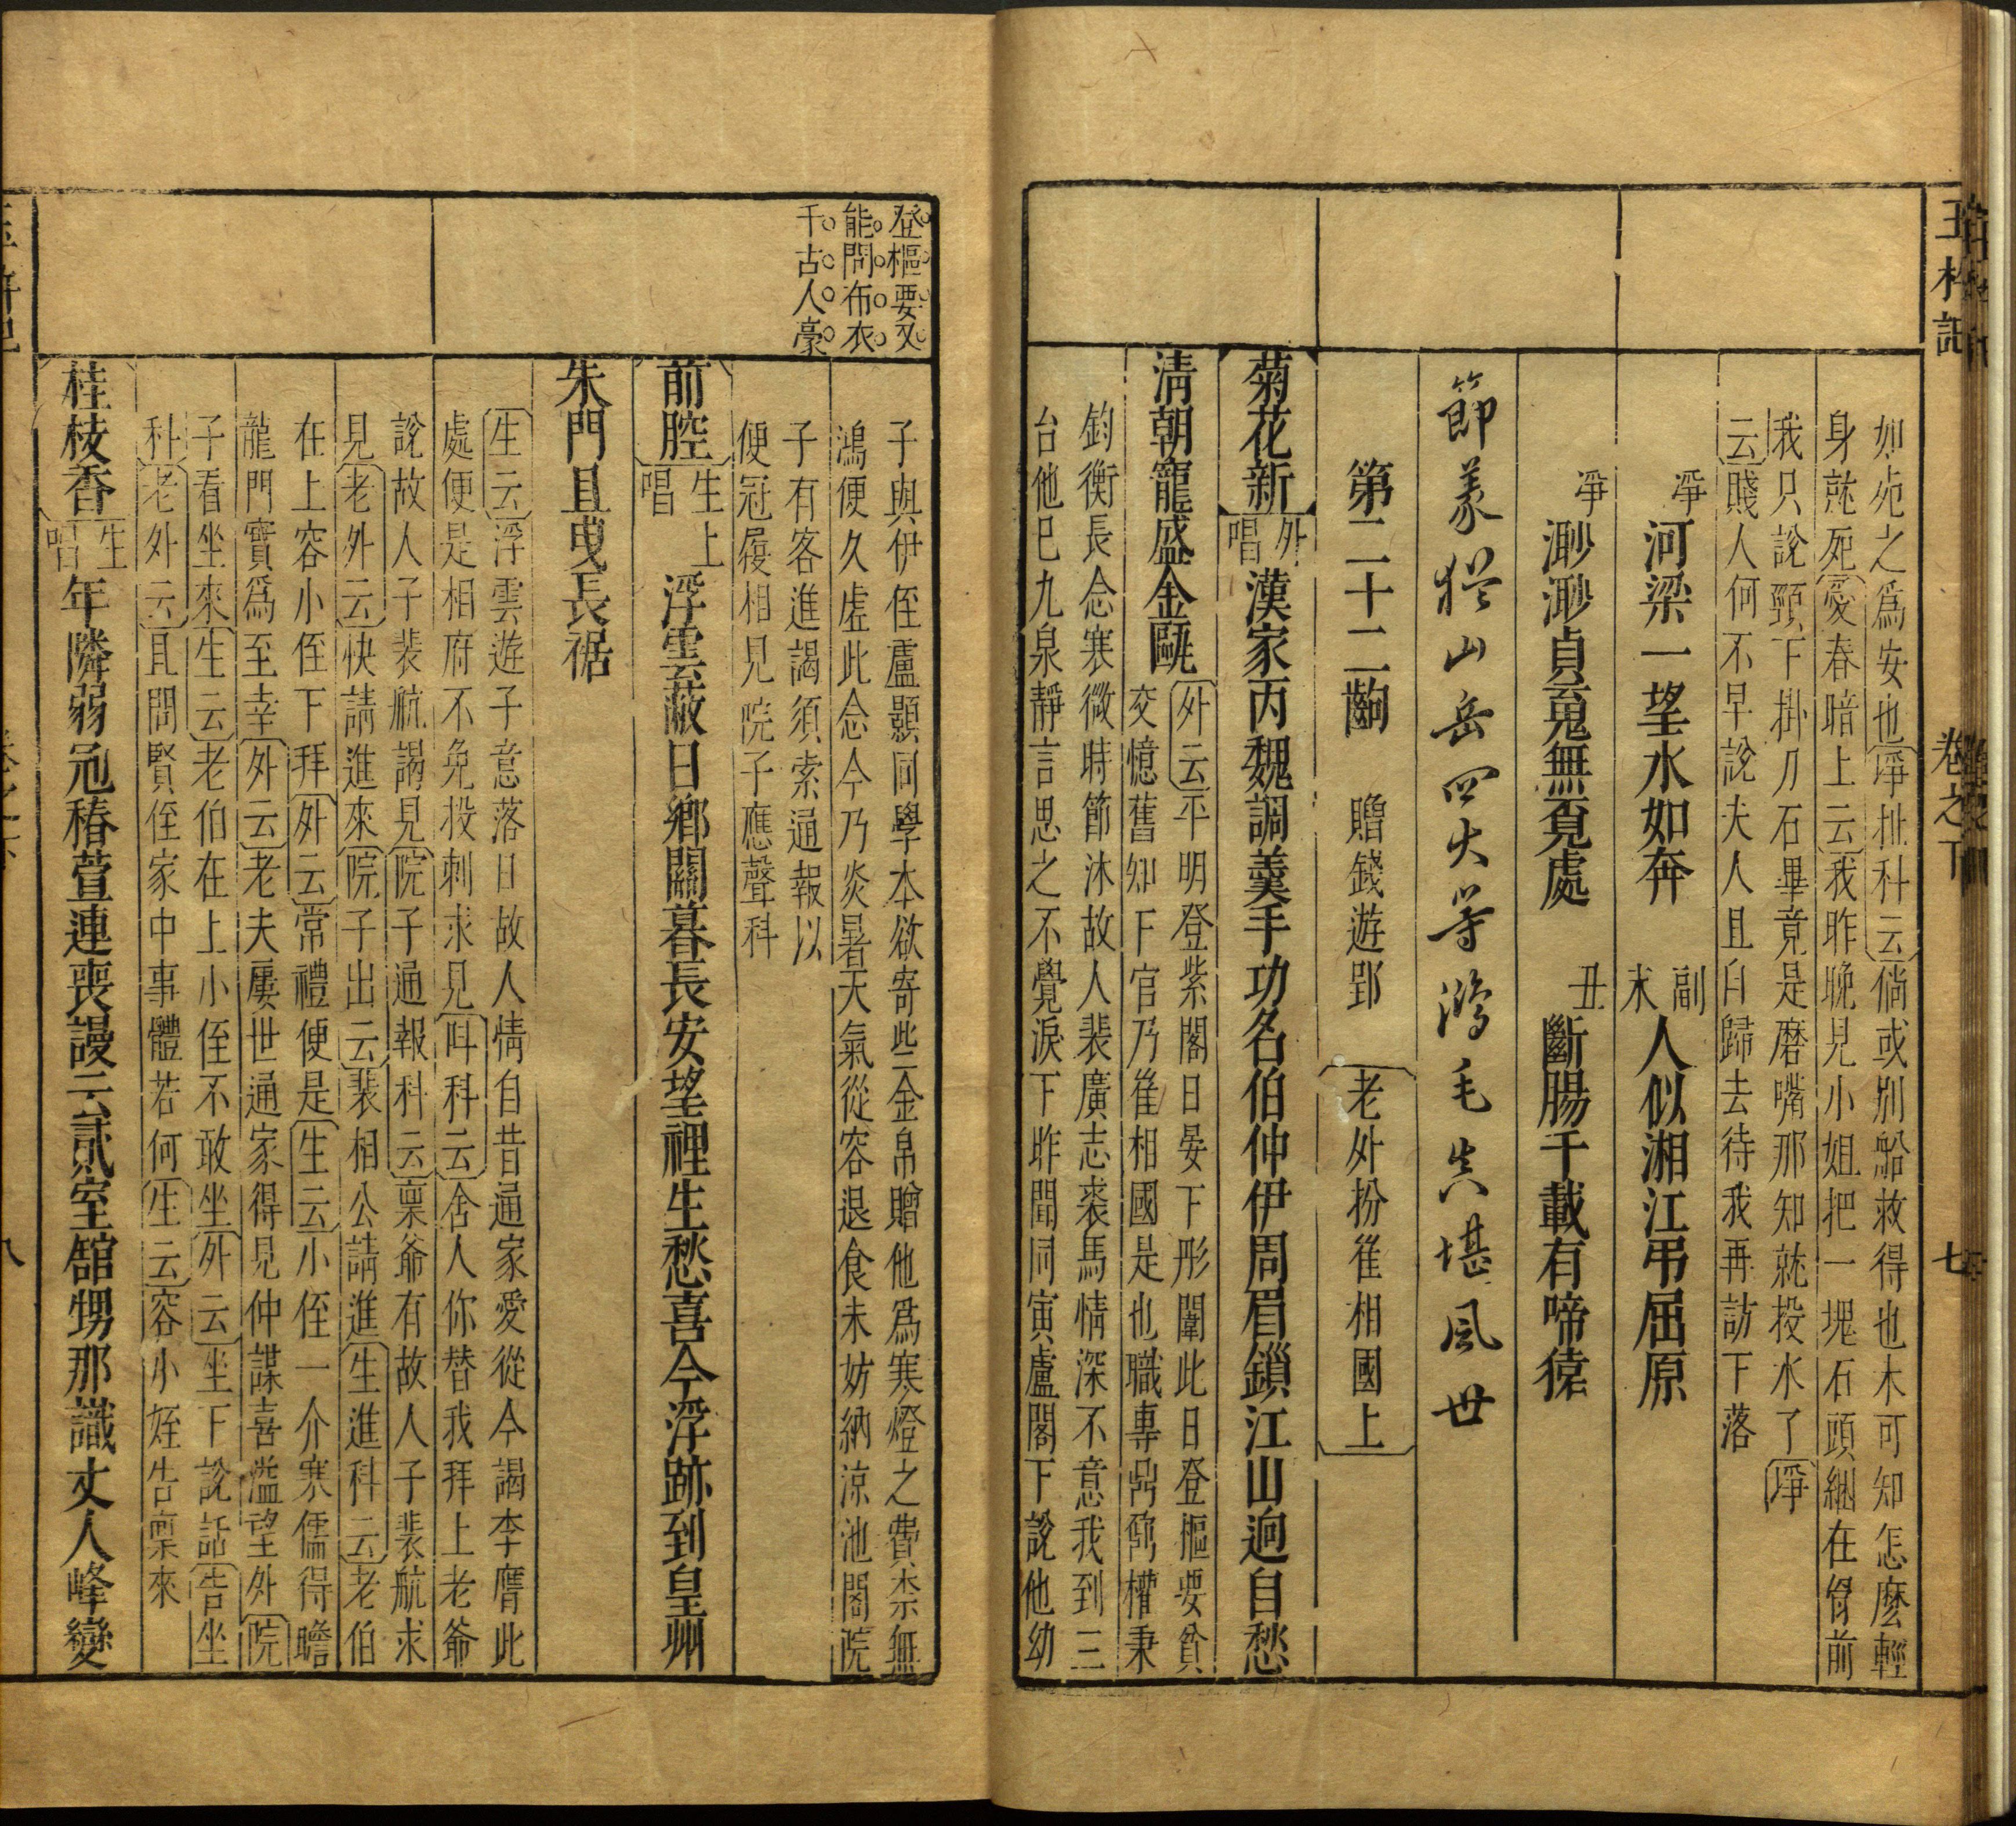 玉杵記
卷之下
七
如死之爲安也〔淨扯科云〕倘或別船救得也未可知怎麽輕
身就死〔愛春暗上云〕我昨晚見小姐把一塊石頭綑在身前
我只說頸下掛刀石畢竟是磨嘴那知就投水了〔淨
云〕賤人何不早說夫人且自歸去待我再訪下落
淨 河梁一望水如奔 副末 人似湘江弔屈原
淨 渺渺貞䰟無覓處 丑 斷腸千載有啼猿
節義從山岳四大等鴻毛共堪風世
第二十二齣 贈錢遊郢 〔老外扮崔相國上〕
【菊花新】〔外唱〕漢家丙魏調羹手功名伯仲伊周眉鎖江山逈自愁
淸朝寵盛金甌
〔外云〕平明登紫閣日晏下彤闈此日登樞要貧
交憶舊知下官乃崔相國是也職專鼎鼐權秉
鈞衡長念寒微時節沐故人裴廣志裘馬情深不意我到三
台他已九泉靜言思之不覺淚下昨聞同寅盧閣下說他幼
登樞要又
能問布衣
千古人豪
子與伊侄盧顥同學本欲寄些金帛贈他爲寒燈之費柰無
鴻便久虛此念今乃炎暑天氣從容退食未妨納涼池閣院
子有客進謁須索通報以
便冠履相見院子應聲科
〔前腔〕〔生上唱〕浮雲蔽日鄉關暮長安望裡生愁喜今浮跡到皇州
朱門且曳長裾
〔生云〕浮雲遊子意落日故人情自昔通家愛從今謁李膺此
處便是相府不免投刺求見〔呌科云〕舍人你替我拜上老爺
說故人子裴航謁見〔院子通報科云〕稟爺有故人子裴航求
見〔老外云〕快請進來〔院子出云〕裴相公請進〔生進科云〕老伯
在上容小侄下拜〔外云〕常禮便是〔生云〕小侄一介寒儒得瞻
龍門實爲至幸〔外云〕老夫屢世通家得見仲謀喜溢望外〔院
子看坐來〕〔生云〕老伯在上小侄不敢坐〔外云〕坐下說話〔告坐
科〕〔老外云〕且問賢侄家中事體若何〔生云〕容小姪告稟來
〔桂枝香〕〔生唱〕年隣弱冠椿萱連喪謾云貳室舘甥那識丈人峰變
八